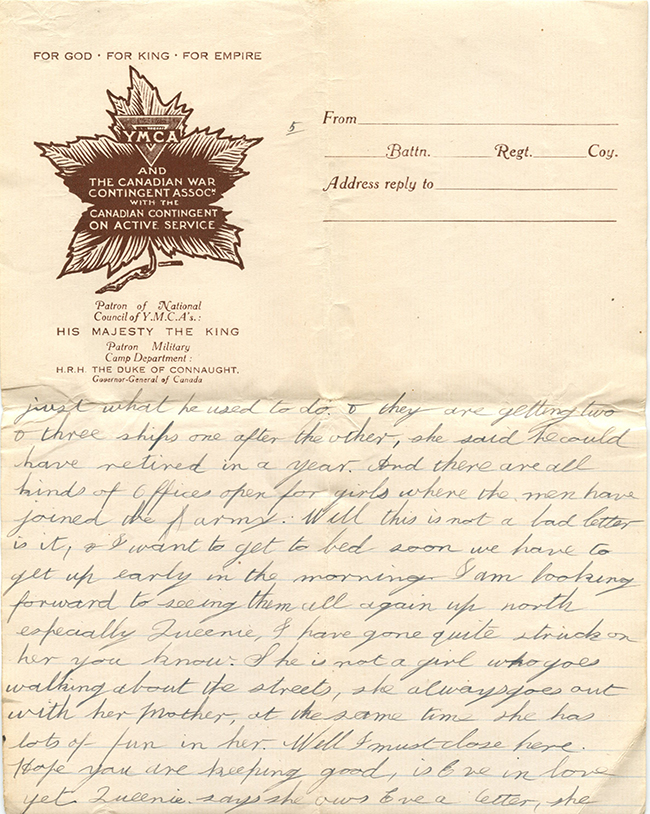 FOR GOD · FOR KING · FOR EMPIRE
YMCA
AND
THE CANADIAN WAR
CONTINGENT ASSOCN
WITH THE
CANADIAN CONTINGENT
ON ACTIVE SERVICE
Patron of National
Council of Y.M.C.A's.:
HIS MAJESTY THE KING
Patron Military
Camp Department:
H.R.H. THE DUKE OF CONNAUGHT.
Governor-General of Canada
5
From
Battn. Regt. Coy.
Address reply to
just what he used to do. & they are getting two
& three ships one after the other, she said he could
have retired in a year. And there are all
kinds of Offices open for girls where the men have
joined the army. Well this is not a bad letter
is it, & I want to get to bed soon we have to
get up early in the morning. I am looking
forward to seeing them all again up north
especially Queenie, I have gone quite struck on
her you know. She is not a girl who goes
walking about the streets, she always goes out
with her Mother, at the same time she has
lots of fun in her. Well I must close here.
Hope you are keeping good, is Eve in love
yet. Queenie says she ows Eve a letter, she